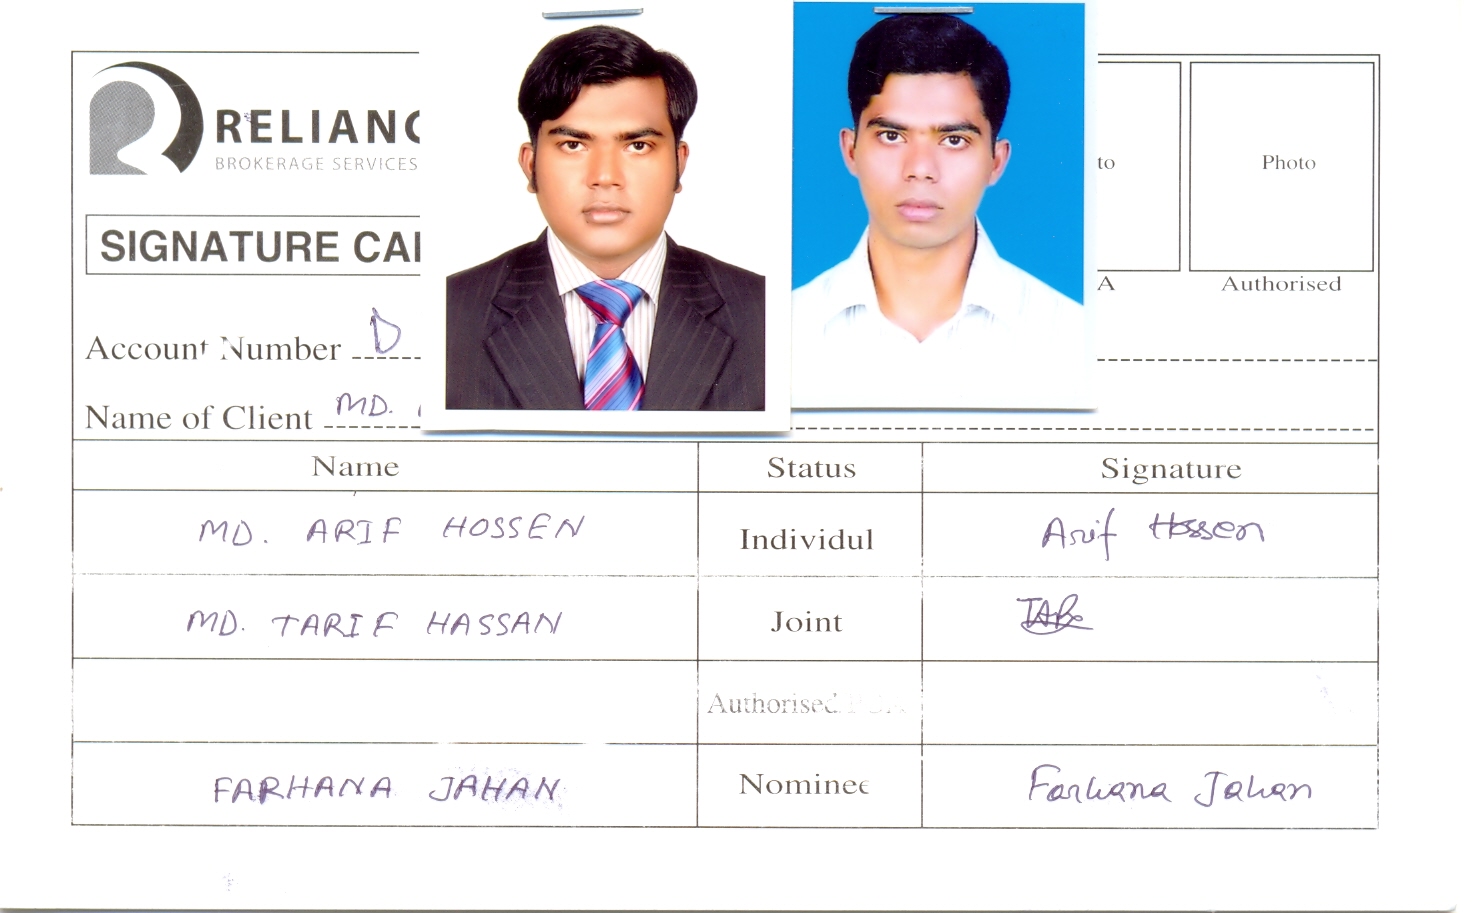 RELIANC
BROKERAGE SERVICES
SIGNATURE CAR
to
Photo
A
Authorised
Account Number D
Name of Client MD.
Name Status Signature
MD. ARIF HOSSEN Individul Arif Hossen
MD. TARIF HASSAN Joint
Authorised
FARHANA JAHAN Nominee Farhana Jahan